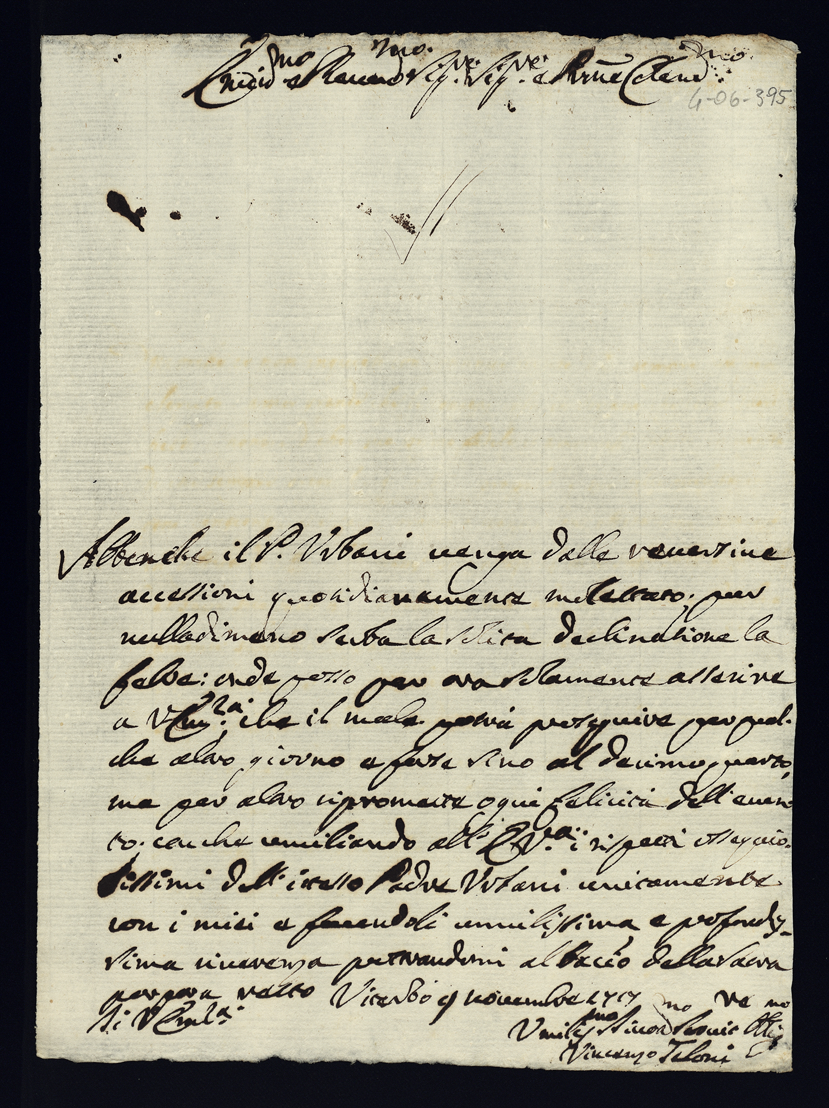 Em.mo e Reu.mo Sig.re Sig.re e Prne Colend.mo
4-06-395
Abbenche il P. Vrbani uenga dalle reuersiue
accessioni quotidianamente molestato; per
nulladimeno serba la solita declinatione la
febre: onde posso per ora solamente asserire
a V. Em.za che il male potrà proseguire per qual-
che altro giorno e forse sino al decimoquarto,
ma per altro ripromette ogni felicità dell'euen-
to. con che umiliando all' E. V.a i rispetti ossequio-
sissimi dell' istesso Padre Vrbani unitamente
con i miei e facendoli umilissima e profondis-
sima riuerenza prostrandomi al baccio della sacra
porpora resto Viterbo 9 nouembre 1717
Di V. Em.za
Vmiliss.mo Seruie Oblig.mo
Vincenzo Teloni